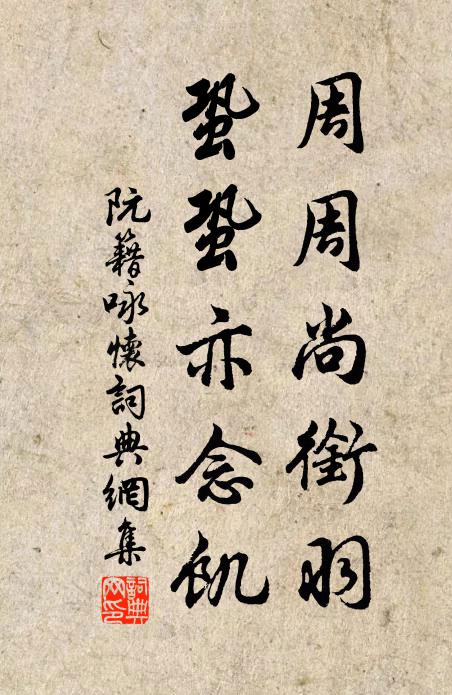 周周尚銜羽
蛩蛩亦念飢
阮籍咏懷詞典網集
詞典網印